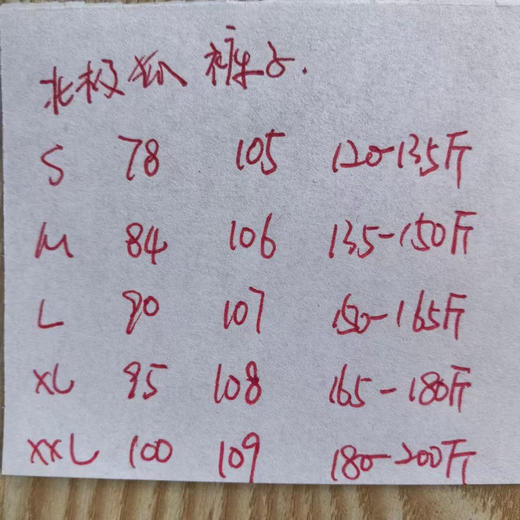 北极狐 裤子.
S 78 105 120-135斤
M 84 106 135-150斤
L 90 107 150-165斤
XL 95 108 165-180斤
XXL 100 109 180-200斤